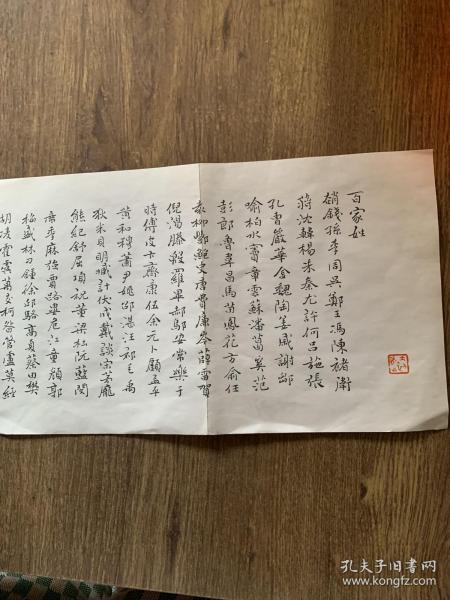 百家姓
趙錢孫李周吳鄭王馮陳褚衛
蔣沈韓楊朱秦尤許何吕施張
孔曹嚴華金魏陶姜戚謝鄒
喻柏水竇章雲蘇潘葛奚范
彭郎魯韋昌馬苗鳳花方俞任
袁柳酆鮑史唐費廉岑薛雷賀
倪湯滕殷羅畢郝鄔安常樂于
時傅皮卞齊康伍余元卜顧孟平
黄和穆蕭尹姚邵湛汪祁毛禹
狄米貝明臧計伏成戴談宋茅龐
熊紀舒屈項祝董梁杜阮藍閔
席季麻强賈路婁危江童顔郭
梅盛林刁鍾徐邱駱高夏蔡田樊
胡凌霍虞萬支柯管盧莫經
孔夫子旧书网
www.kongfz.com